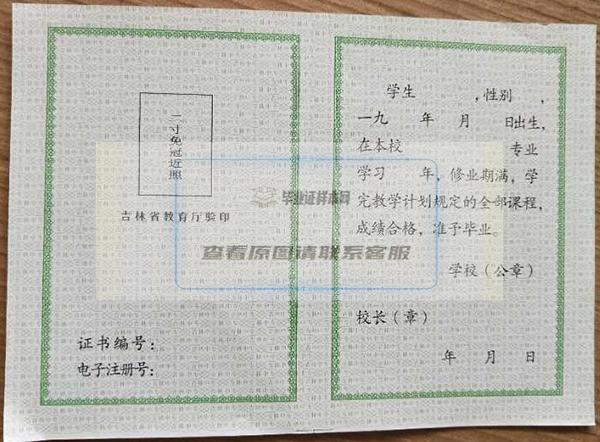 二寸免冠近照
吉林省教育厅验印
证书编号:
电子注册号:
学生 ,性别 ,
一九 年 月 日出生,
在本校 专业
学习 年,修业期满,学
完教学计划规定的全部课程,
成绩合格,准予毕业。
学校(公章)
校长(章)
年 月 日
毕业证样本网
查看原图请联系客服